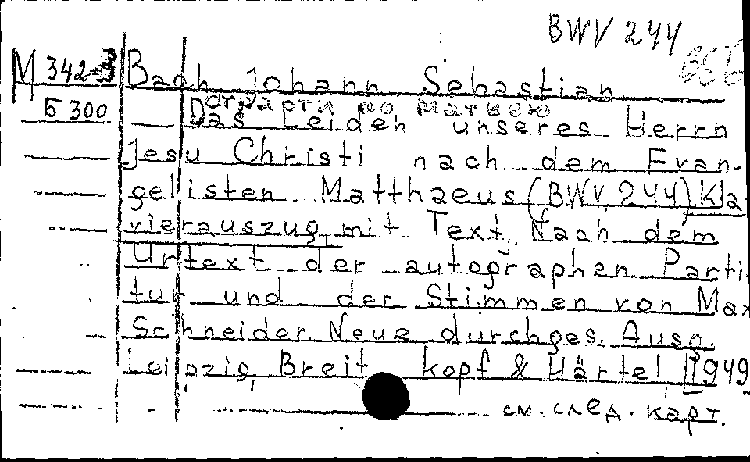 BWV 244
M 342-3 Bach Johann Sebastian
Страсти по Матвею
Б 300 Das Leiden unseres Herrn
Jesu Christi nach dem Evan-
gelisten Matthaeus (BWV 244) Kla
vierauszug mit Text. Nach dem
Urtext der autographen Parti
tur und der Stimmen von Max
Schneider. Neue durchges. Ausg.
Leipzig, Breitkopf & Härtel [1949
см. след. карт.